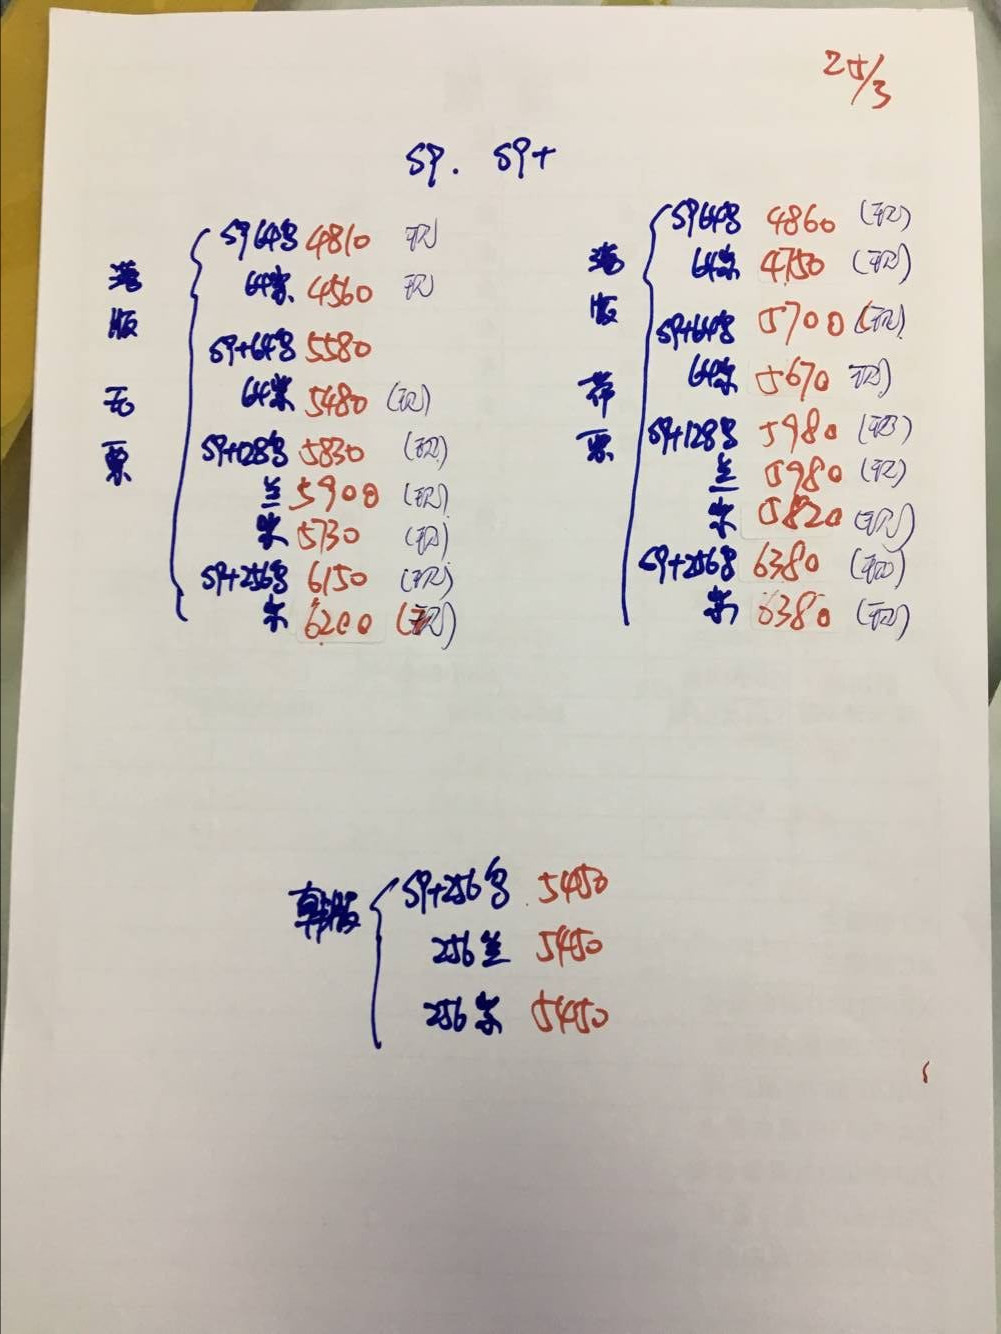 25/3
S9. S9+
港版无票
S9 64黑 4810 现
64紫 4560 现
S9+64黑 5580
64紫 5480 (现)
S9+128黑 5830 (现)
兰 5900 (现)
紫 5730 (现)
S9+256黑 6150 (现)
紫 6200 (现)
港版带票
S9 64黑 4860 (现)
64紫 4750 (现)
S9+64黑 5700 (现)
64紫 5670 现)
S9+128黑 5980 (现)
兰 5980 (现)
紫 5820 (现)
S9+256黑 6380 (现)
紫 6380 (现)
韩版
S9+256黑 5450
256兰 5450
256紫 5450